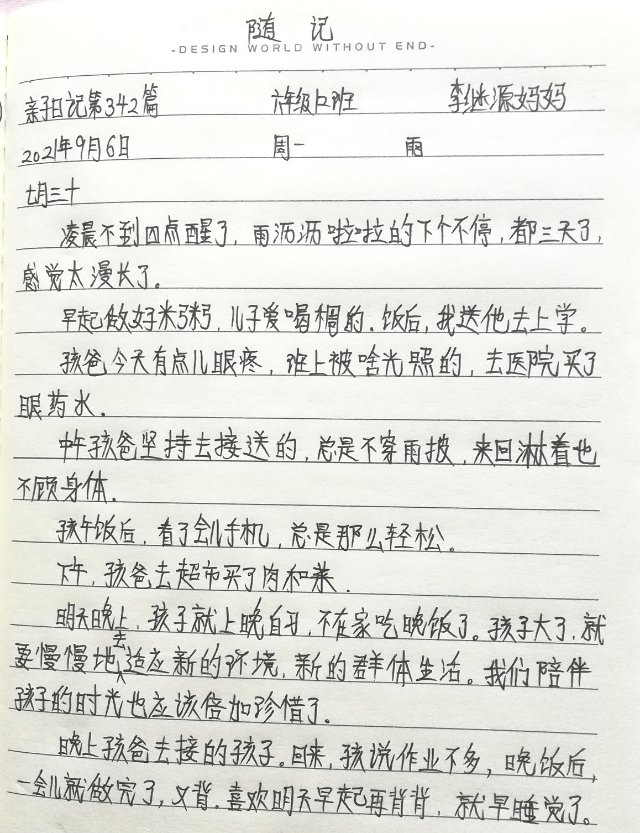 随记
-DESIGN WORLD WITHOUT END-
亲子日记第342篇 六年级12班 李继源妈妈
2021年9月6日 周一 雨
七月三十
凌晨不到四点醒了，雨沥沥啦啦的下个不停，都三天了，
感觉太漫长了。
早起做好米粥，儿子爱喝稠的．饭后，我送他去上学。
孩爸今天有点儿眼疼，班上被啥光照的，去医院买了
眼药水．
中午孩爸坚持去接送的，总是不穿雨披，来回淋着也
不顾身体．
孩午饭后，看了会儿手机，总是那么轻松。
下午，孩爸去超市买了肉和菜．
明天晚上，孩子就上晚自习，不在家吃晚饭了。孩子大了，就
要慢慢地去适应新的环境，新的群体生活。我们陪伴
孩子的时光也应该倍加珍惜了。
晚上孩爸去接的孩子。回来，孩说作业不多，晚饭后，
一会儿就做完了，又背．喜欢明天早起再背背，就早睡觉了。